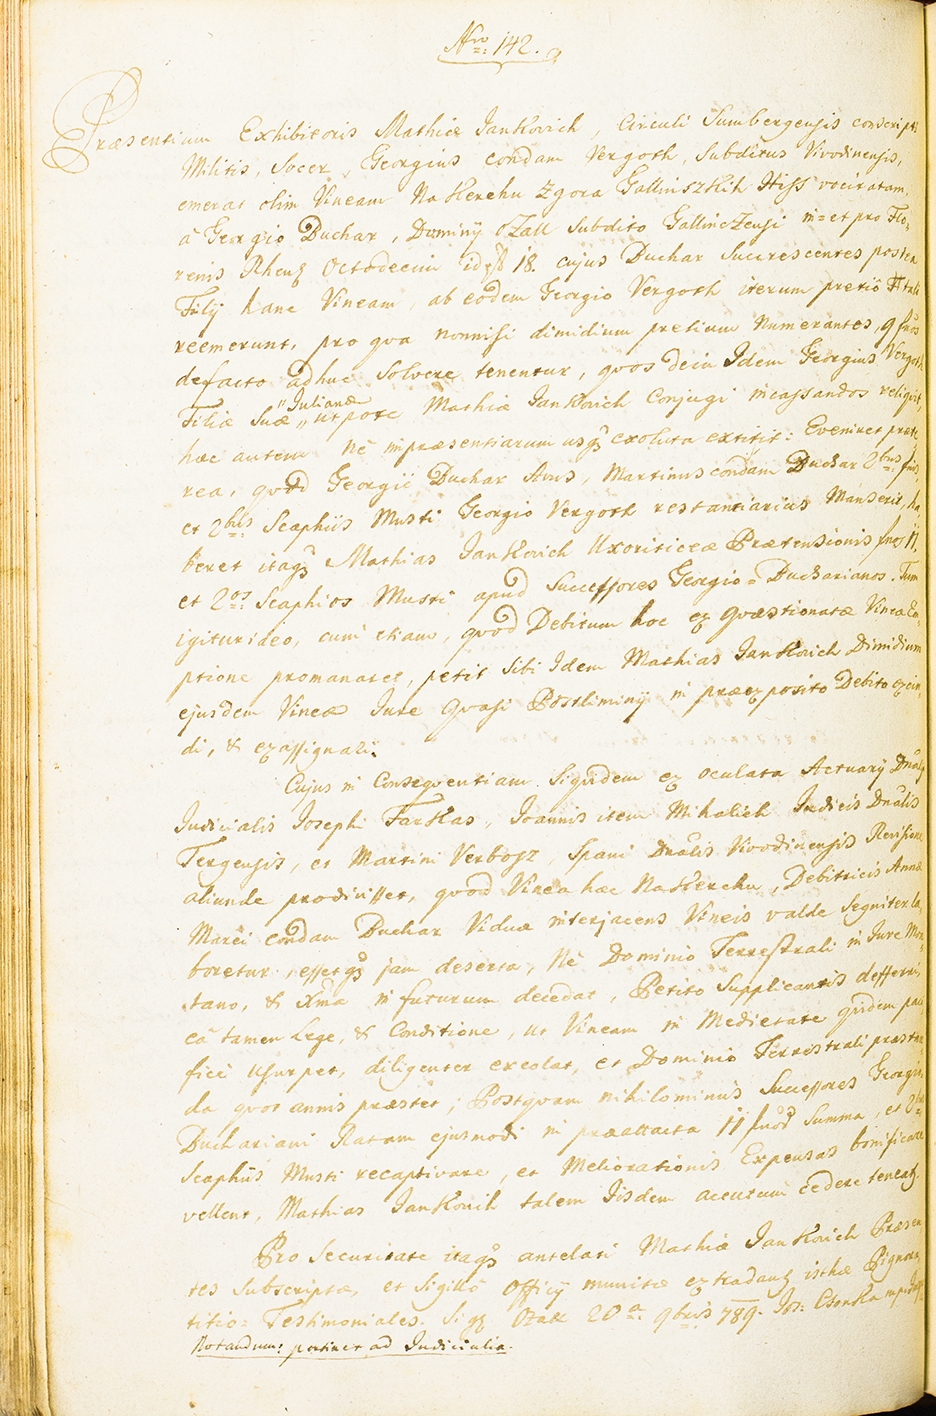 Nro 142.
Præsentium Exhibitoris Mathiæ Jankovich, Circuli Sumbergensis conscripti
Militis, Socer, Georgius condam Vergoth, Subditus Vivodinensis,
emerat olim Vineam Na Kerchu Zgora Gallinszkih Hiss vocitatam,
à Georgio Duchar, Dominÿ Ozall Subdito Gallinczensi in= et pro Flo,
renis Rhen Octodecim id 18. cujus Duchar Succrescentes postea
Filÿ hanc Vineam, ab eodem Georgio Vergoth iterum pretiô
reemerunt, pro qva nonnisi dimidium pretium Numerantes, 9 fnos
defacto adhuc Solvere tenentur, qvos dein Idem Georgius Vergoth
Filiæ Suæ „Julianæ„ utpote Mathiæ Jankovich Conjugi incassandos reliqvit,
hæc autem Nè inpræsentiarum usq exoluta extitit: Eveniret præte
rea, qvod Georgiÿ Duchar Avus, Martinus condam Duchar 2bus fnis,
et 2bus Scaphiis Musti Georgio Vergoth restantiarius Manserit, ha,
beret itaq Mathias Jankovich Uxoriticeæ Prætensionis fnos 11.
et 2os Scaphios Musti apud Successores Georgio=Ducharianos. Tum
igitur ideo, cum etiam, qvod Debitum hoc ex qvæstionatæ Vineæ Em,
ptione promanaret, petit Sibi Idem Mathias Jankovich Dimidium
ejusdem Vineæ Jure qvasi Postliminÿ in præexposito Debito excin
di, & exassignari.
Cujus in Conseqventiam Siqvidem ex oculata Actuarÿ Dnalis
Judicialis Josephi Farkas, Joannis item Mihalich Judicis Dnalis
Tergensis, et Martini Verbosz, Spani Dnalis Vivodinensis Revisione
aliunde prodivisset, qvod Vinea hæc Na Kerchu, Debitricis Annæ
Marci condam Duchar Viduæ interjacens Vineis valde Segniter la,
boretur, essetq jam deserta, Nè Dominio Terrestrali in Jure Mon
tano, & Xma in futurum decedat, Petito Supplicantis defferri,
eâ tamen Lege, & Conditione, ut Vineam in Medietate qvidem paci
fice usurpet, diligenter excolat, et Dominio Terrestrali præstan
da qvot annis præstet; Postqvam nihilominus Successores Georgio
Duchariani Ratam ejusmodi in præattacta 11 fnor Summa, et 2bus
Scaphiis Musti recaptivare, et Meliorationis Expensas bonificare
vellent, Mathias Jankovich talem Iisdem accutum cedere teneat.
Pro Securitate itaq antelati Mathiæ Jankovich Præsen
tes Subscriptæ, et Sigillô Officÿ munitæ extradant isthæ Pignora
titio: Testimoniales. Sig Ozall 20a 9bris 789. Jos: Csonka mp
Notandum: pertinet ad Judicialia.